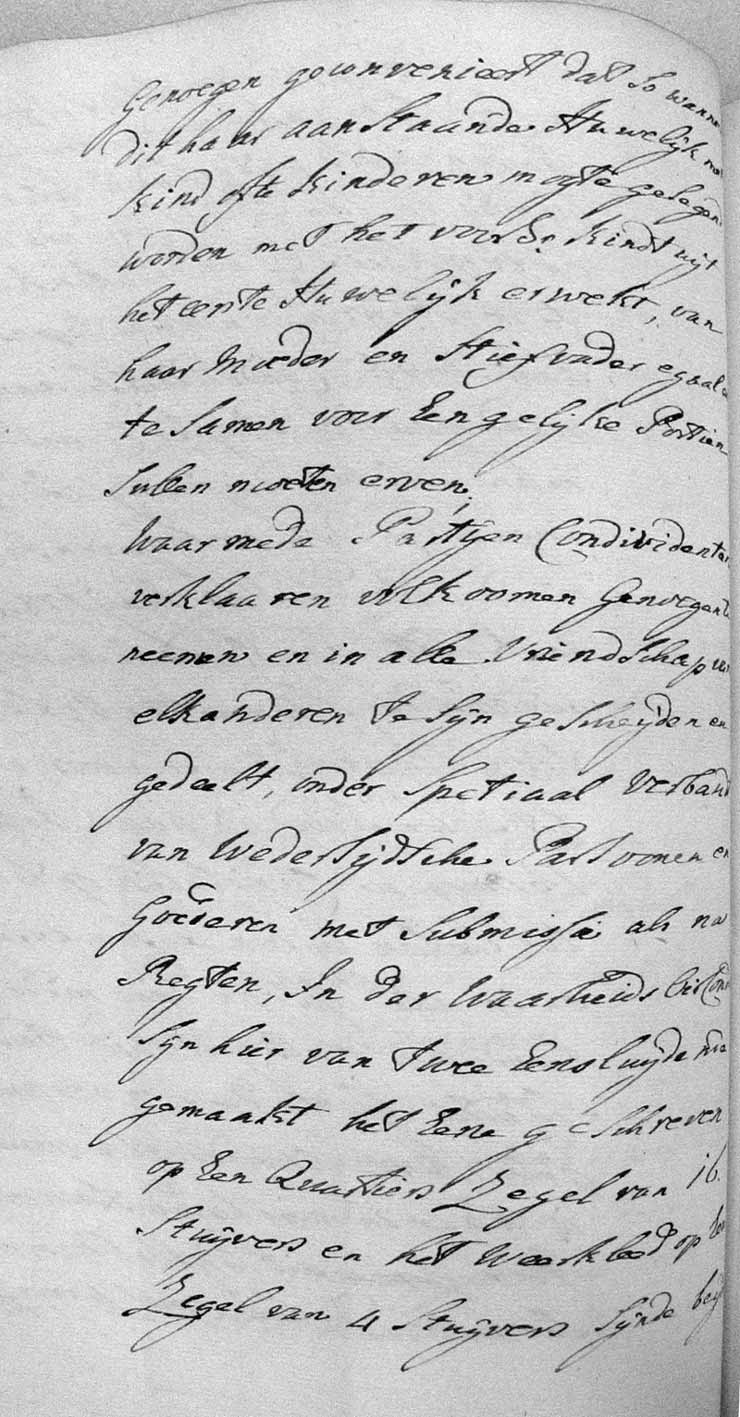 Genoegen geconvenieert dat so wanne
dit haar aanstaande Huwelijk met
kind ofte kinderen mogte gesegend
worden met het voors: kindt uijt
het eerste Huwelijk erwekt, van
haar Moeder en Stiefvader egaal
te samen voor Een gelijke Portien
sullen moeten erven;
Waarmede Partijen Condividenten
verklaaren volkoomen Genoegen te
neemen en in alle Vriendschap van
elkanderen te sijn gescheijden en
gedeelt, onder Spetiaal Verband
van Wedersijdsche Persoonen en
Goederen met Submissie als na
Regten, In der Waarheids Oirconde
sijn hier van twee Eensluijde
gemaakt het Eene geschreven
op Een Quartiers Zegel van 16
Stuijvers en het Weerkleed op Een
Zegel van 4 Stuijvers sijnde beij